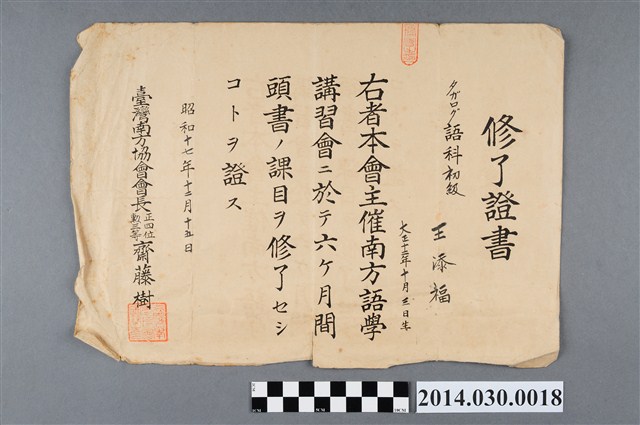 修了證書
タガログ語科初級
王添福
大正十五年十月三日生
右者本會主催南方語學
講習會ニ於テ六ケ月間
頭書ノ課目ヲ修了セシ
コトヲ證ス
昭和十七年十二月十五日
臺灣南方協會會長正四位勳三等齋藤樹
2014.030.0018